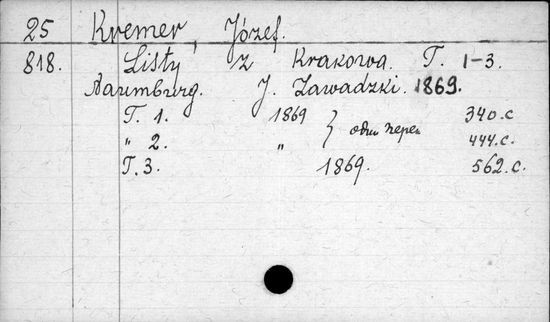 25 Kremer, Józef.
818. Listy z Krakowa. T. 1-3.
Naumburg. J. Zawadzki. 1869.
T. 1. 1869 } один переп 340.c
" 2. " 444.c.
T. 3. 1869. 562.c.